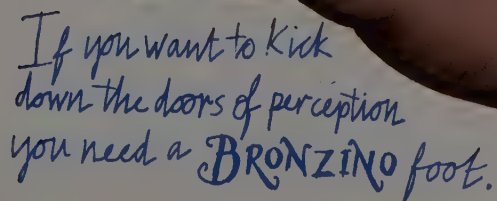 If you want to kick
down the doors of perception
you need a BRONZINO foot.